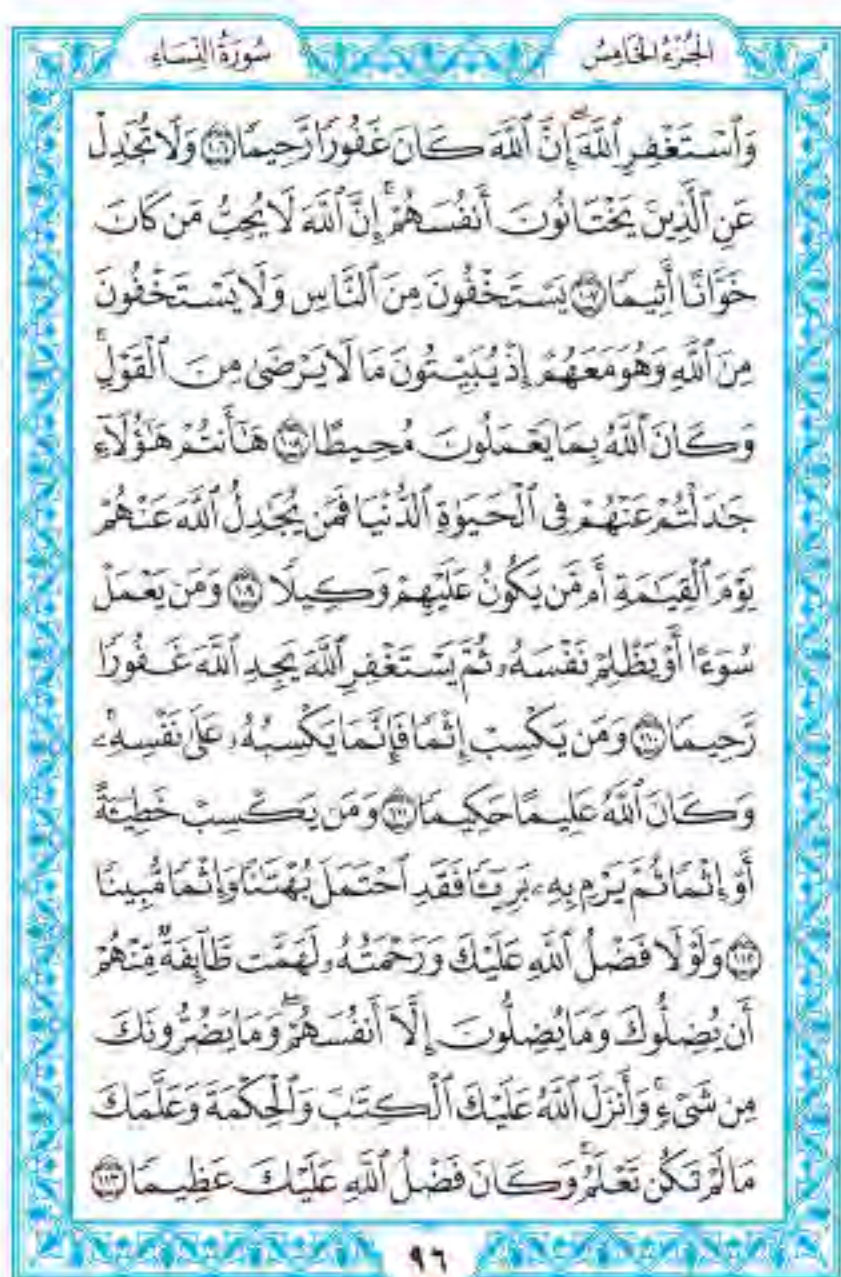 الجُزْءُ الخَامِسُ
سُورَةُ النِّسَاءِ
وَٱسْتَغْفِرِ ٱللَّهَ ۖ إِنَّ ٱللَّهَ كَانَ غَفُورًا رَّحِيمًا ١٠٦ وَلَا تُجَٰدِلْ
عَنِ ٱلَّذِينَ يَخْتَانُونَ أَنفُسَهُمْ ۚ إِنَّ ٱللَّهَ لَا يُحِبُّ مَن كَانَ
خَوَّانًا أَثِيمًا ١٠٧ يَسْتَخْفُونَ مِنَ ٱلنَّاسِ وَلَا يَسْتَخْفُونَ
مِنَ ٱللَّهِ وَهُوَ مَعَهُمْ إِذْ يُبَيِّتُونَ مَا لَا يَرْضَىٰ مِنَ ٱلْقَوْلِ ۚ
وَكَانَ ٱللَّهُ بِمَا يَعْمَلُونَ مُحِيطًا ١٠٨ هَٰٓأَنتُمْ هَٰٓؤُلَآءِ
جَٰدَلْتُمْ عَنْهُمْ فِى ٱلْحَيَوٰةِ ٱلدُّنْيَا فَمَن يُجَٰدِلُ ٱللَّهَ عَنْهُمْ
يَوْمَ ٱلْقِيَٰمَةِ أَم مَّن يَكُونُ عَلَيْهِمْ وَكِيلًا ١٠٩ وَمَن يَعْمَلْ
سُوٓءًا أَوْ يَظْلِمْ نَفْسَهُۥ ثُمَّ يَسْتَغْفِرِ ٱللَّهَ يَجِدِ ٱللَّهَ غَفُورًا
رَّحِيمًا ١١٠ وَمَن يَكْسِبْ إِثْمًا فَإِنَّمَا يَكْسِبُهُۥ عَلَىٰ نَفْسِهِۦ ۚ
وَكَانَ ٱللَّهُ عَلِيمًا حَكِيمًا ١١١ وَمَن يَكْسِبْ خَطِيٓـَٔةً
أَوْ إِثْمًا ثُمَّ يَرْمِ بِهِۦ بَرِيٓـًٔا فَقَدِ ٱحْتَمَلَ بُهْتَٰنًا وَإِثْمًا مُّبِينًا
١١٢ وَلَوْلَا فَضْلُ ٱللَّهِ عَلَيْكَ وَرَحْمَتُهُۥ لَهَمَّت طَّآئِفَةٌ مِّنْهُمْ
أَن يُضِلُّوكَ وَمَا يُضِلُّونَ إِلَّآ أَنفُسَهُمْ ۖ وَمَا يَضُرُّونَكَ
مِن شَىْءٍ ۚ وَأَنزَلَ ٱللَّهُ عَلَيْكَ ٱلْكِتَٰبَ وَٱلْحِكْمَةَ وَعَلَّمَكَ
مَا لَمْ تَكُن تَعْلَمُ ۚ وَكَانَ فَضْلُ ٱللَّهِ عَلَيْكَ عَظِيمًا ١١٣
٩٦